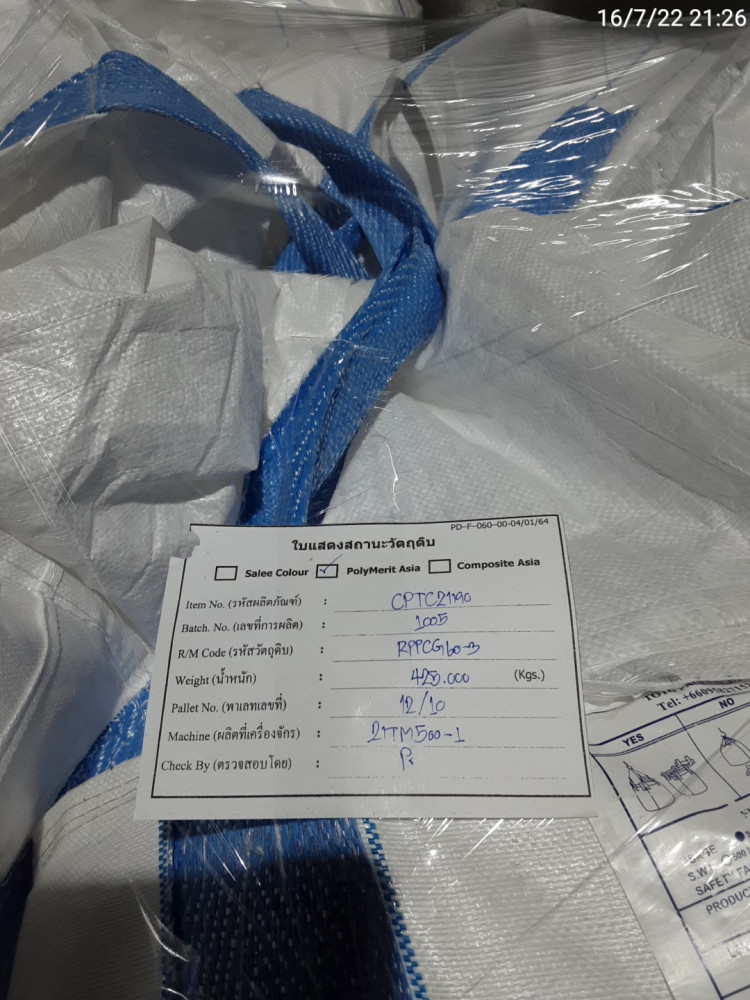 16/7/22 21:26
PD-F-060-00-04/01/64
ใบแสดงสถานะวัตถุดิบ
Salee Colour ✓ PolyMerit Asia Composite Asia
Item No. (รหัสผลิตภัณฑ์) : CPTC21190
Batch. No. (เลขที่การผลิต) : 1005
R/M Code (รหัสวัตถุดิบ) : RPPCG160-3
Weight (น้ำหนัก) : 425.000 (Kgs.)
Pallet No. (พาเลทเลขที่) : 12/10
Machine (ผลิตที่เครื่องจักร) : 21TM500-1
Check By (ตรวจสอบโดย) :
Tel:
YES NO
S.W.L
SAFETY FA
PRODUC